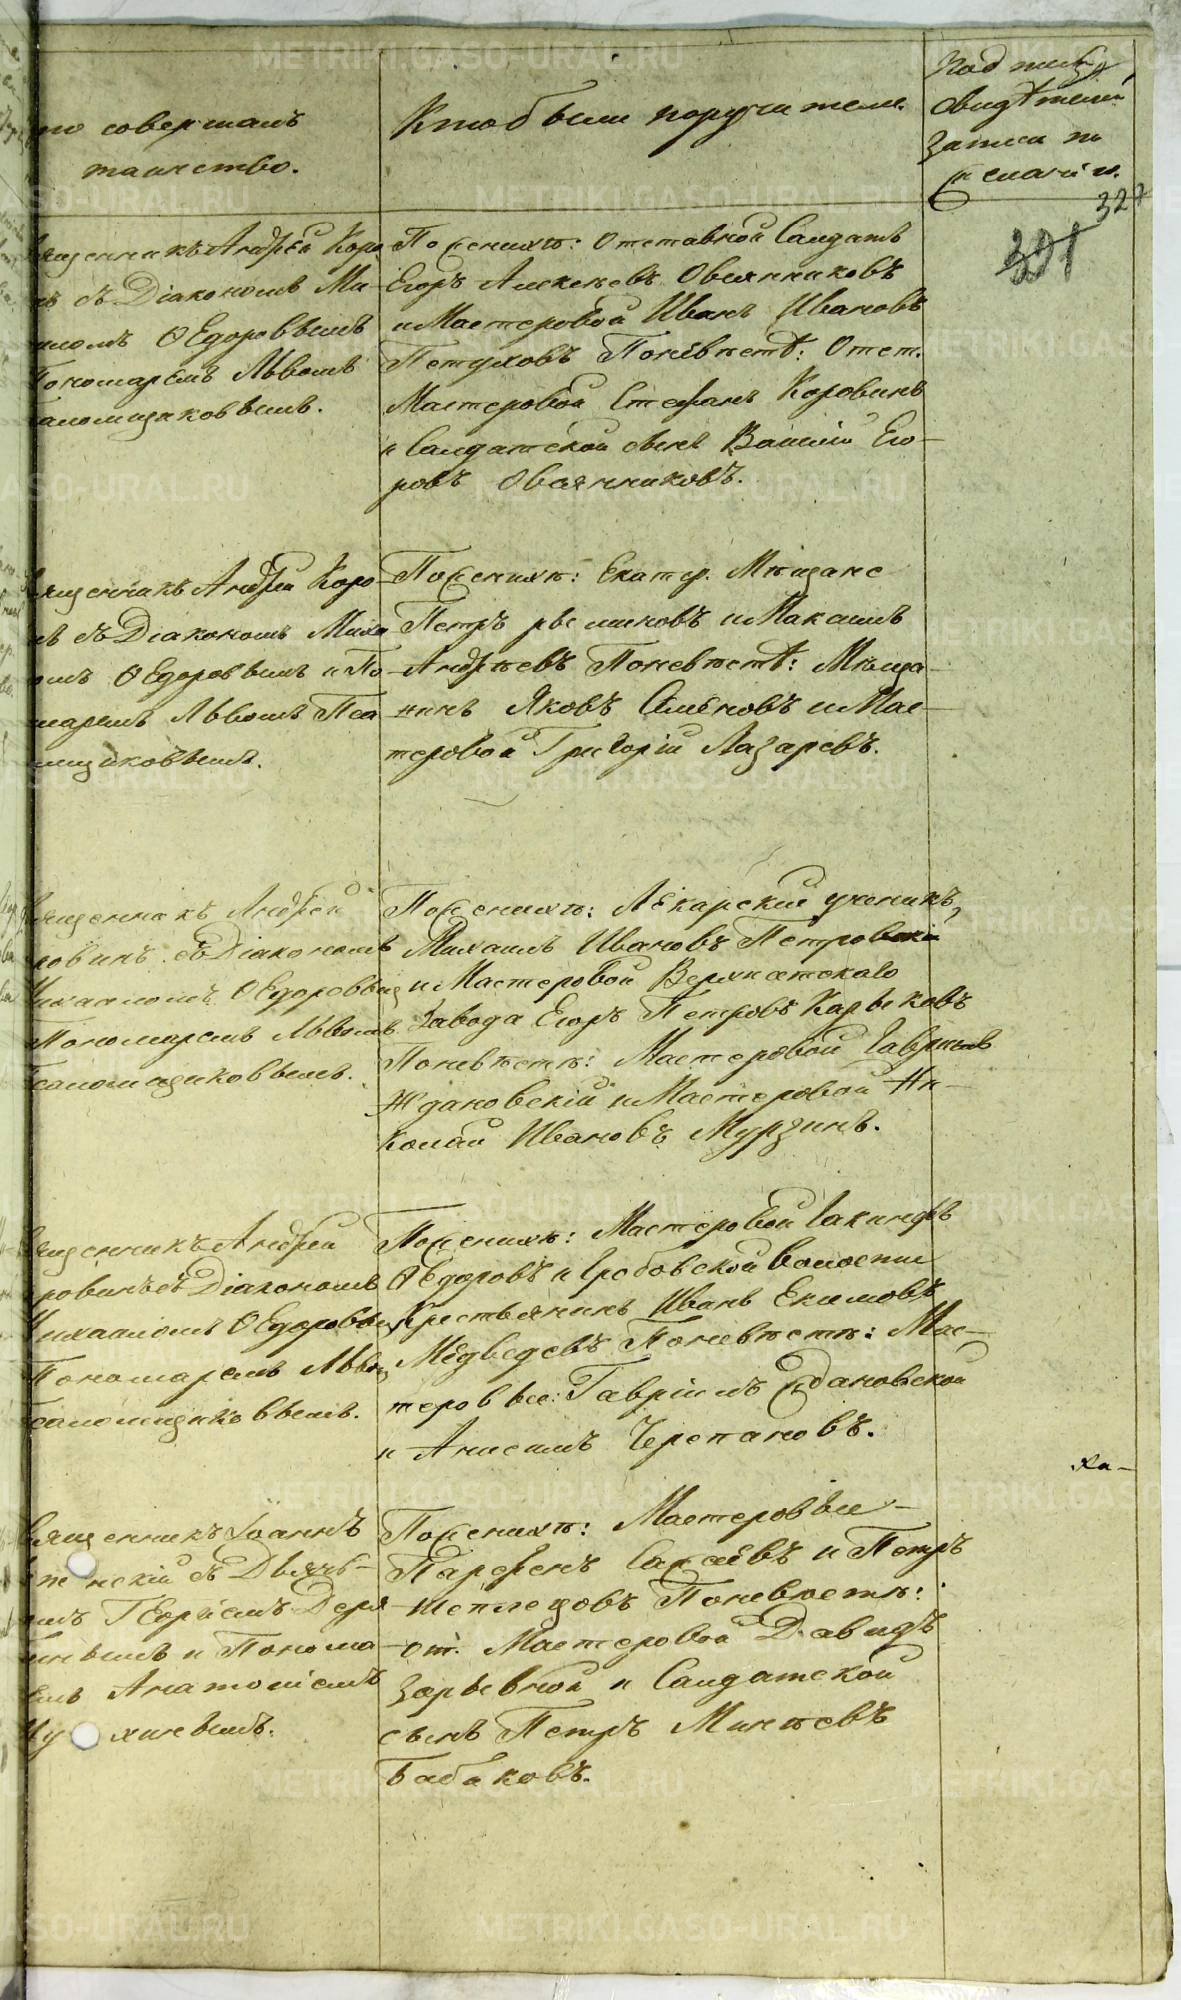 то совершалъ
таинство.
Кто были поручители.
Подпись
свидѣтелей
записи по
желанію.
327
391
вященникъ Андрей Коро
съ Діакономъ Ми-
иломъ Ѳедоровымъ
Пономаремъ Львомъ
саломщиковымъ.
По женихѣ: Отставной Салдатъ
Егоръ Алексѣевъ Овсянниковъ
и Мастеровой Иванъ Ивановъ
Пѣтуховъ По невѣстѣ: Отст.
Мастеровой Стефанъ Коровинъ
и Салдатской сынъ Василій Его-
ровъ Овсянниковъ.
вященникъ Андрей Коро-
ъ съ Діакономъ Миха
омъ Ѳедоровымъ и По
маремъ Львомъ Пса
мщиковымъ.
По женихѣ: Екатер. Мѣщане
Петръ и Максимъ
Андрѣевъ По невѣстѣ: Мѣща-
нинъ Яковъ Семеновъ и Мас-
теровой Григорій Лазаревъ.
вященникъ Андрей
ровинъ съ Діакономъ
Михаиломъ Ѳедоровым
Пономаремъ Львомъ
саломщиковымъ.
По женихѣ: Лѣкарскій ученикъ,
Михаилъ Ивановъ Петровскій
и Мастеровой Верхисетскаго
Завода Егоръ Петровъ Карьковъ
По невѣстѣ: Мастеровой Гаврiилъ
Ждановскій и Мастеровой Ни-
колай Ивановъ Мурзинъ.
вященникъ Андрей
ровинъ съ Діакономъ
Михаиломъ Ѳедоровы
Пономаремъ Львом
саломщиковымъ.
По женихѣ: Мастеровой Іакинфъ
Ѳедоровъ и Гробовской волости
Крестьянинъ Иванъ Екимовъ
Медведевъ По невѣстѣ: Мас-
теровые: Гавріилъ Ждановской
и Анисимъ Черепановъ.
Ха-
вященникъ Іоаннъ
нскій съ Дьячь-
мъ Георгіемъ Деря
инымъ и Понома
емъ Анатоліемъ
хинымъ.
По женихѣ: Мастеровые
Парфенъ и Петръ
Шеплецовъ По невѣстѣ:
от. Мастеровой Давидъ
и Салдатской
сынъ Петръ Минѣевъ
Бабаковъ.